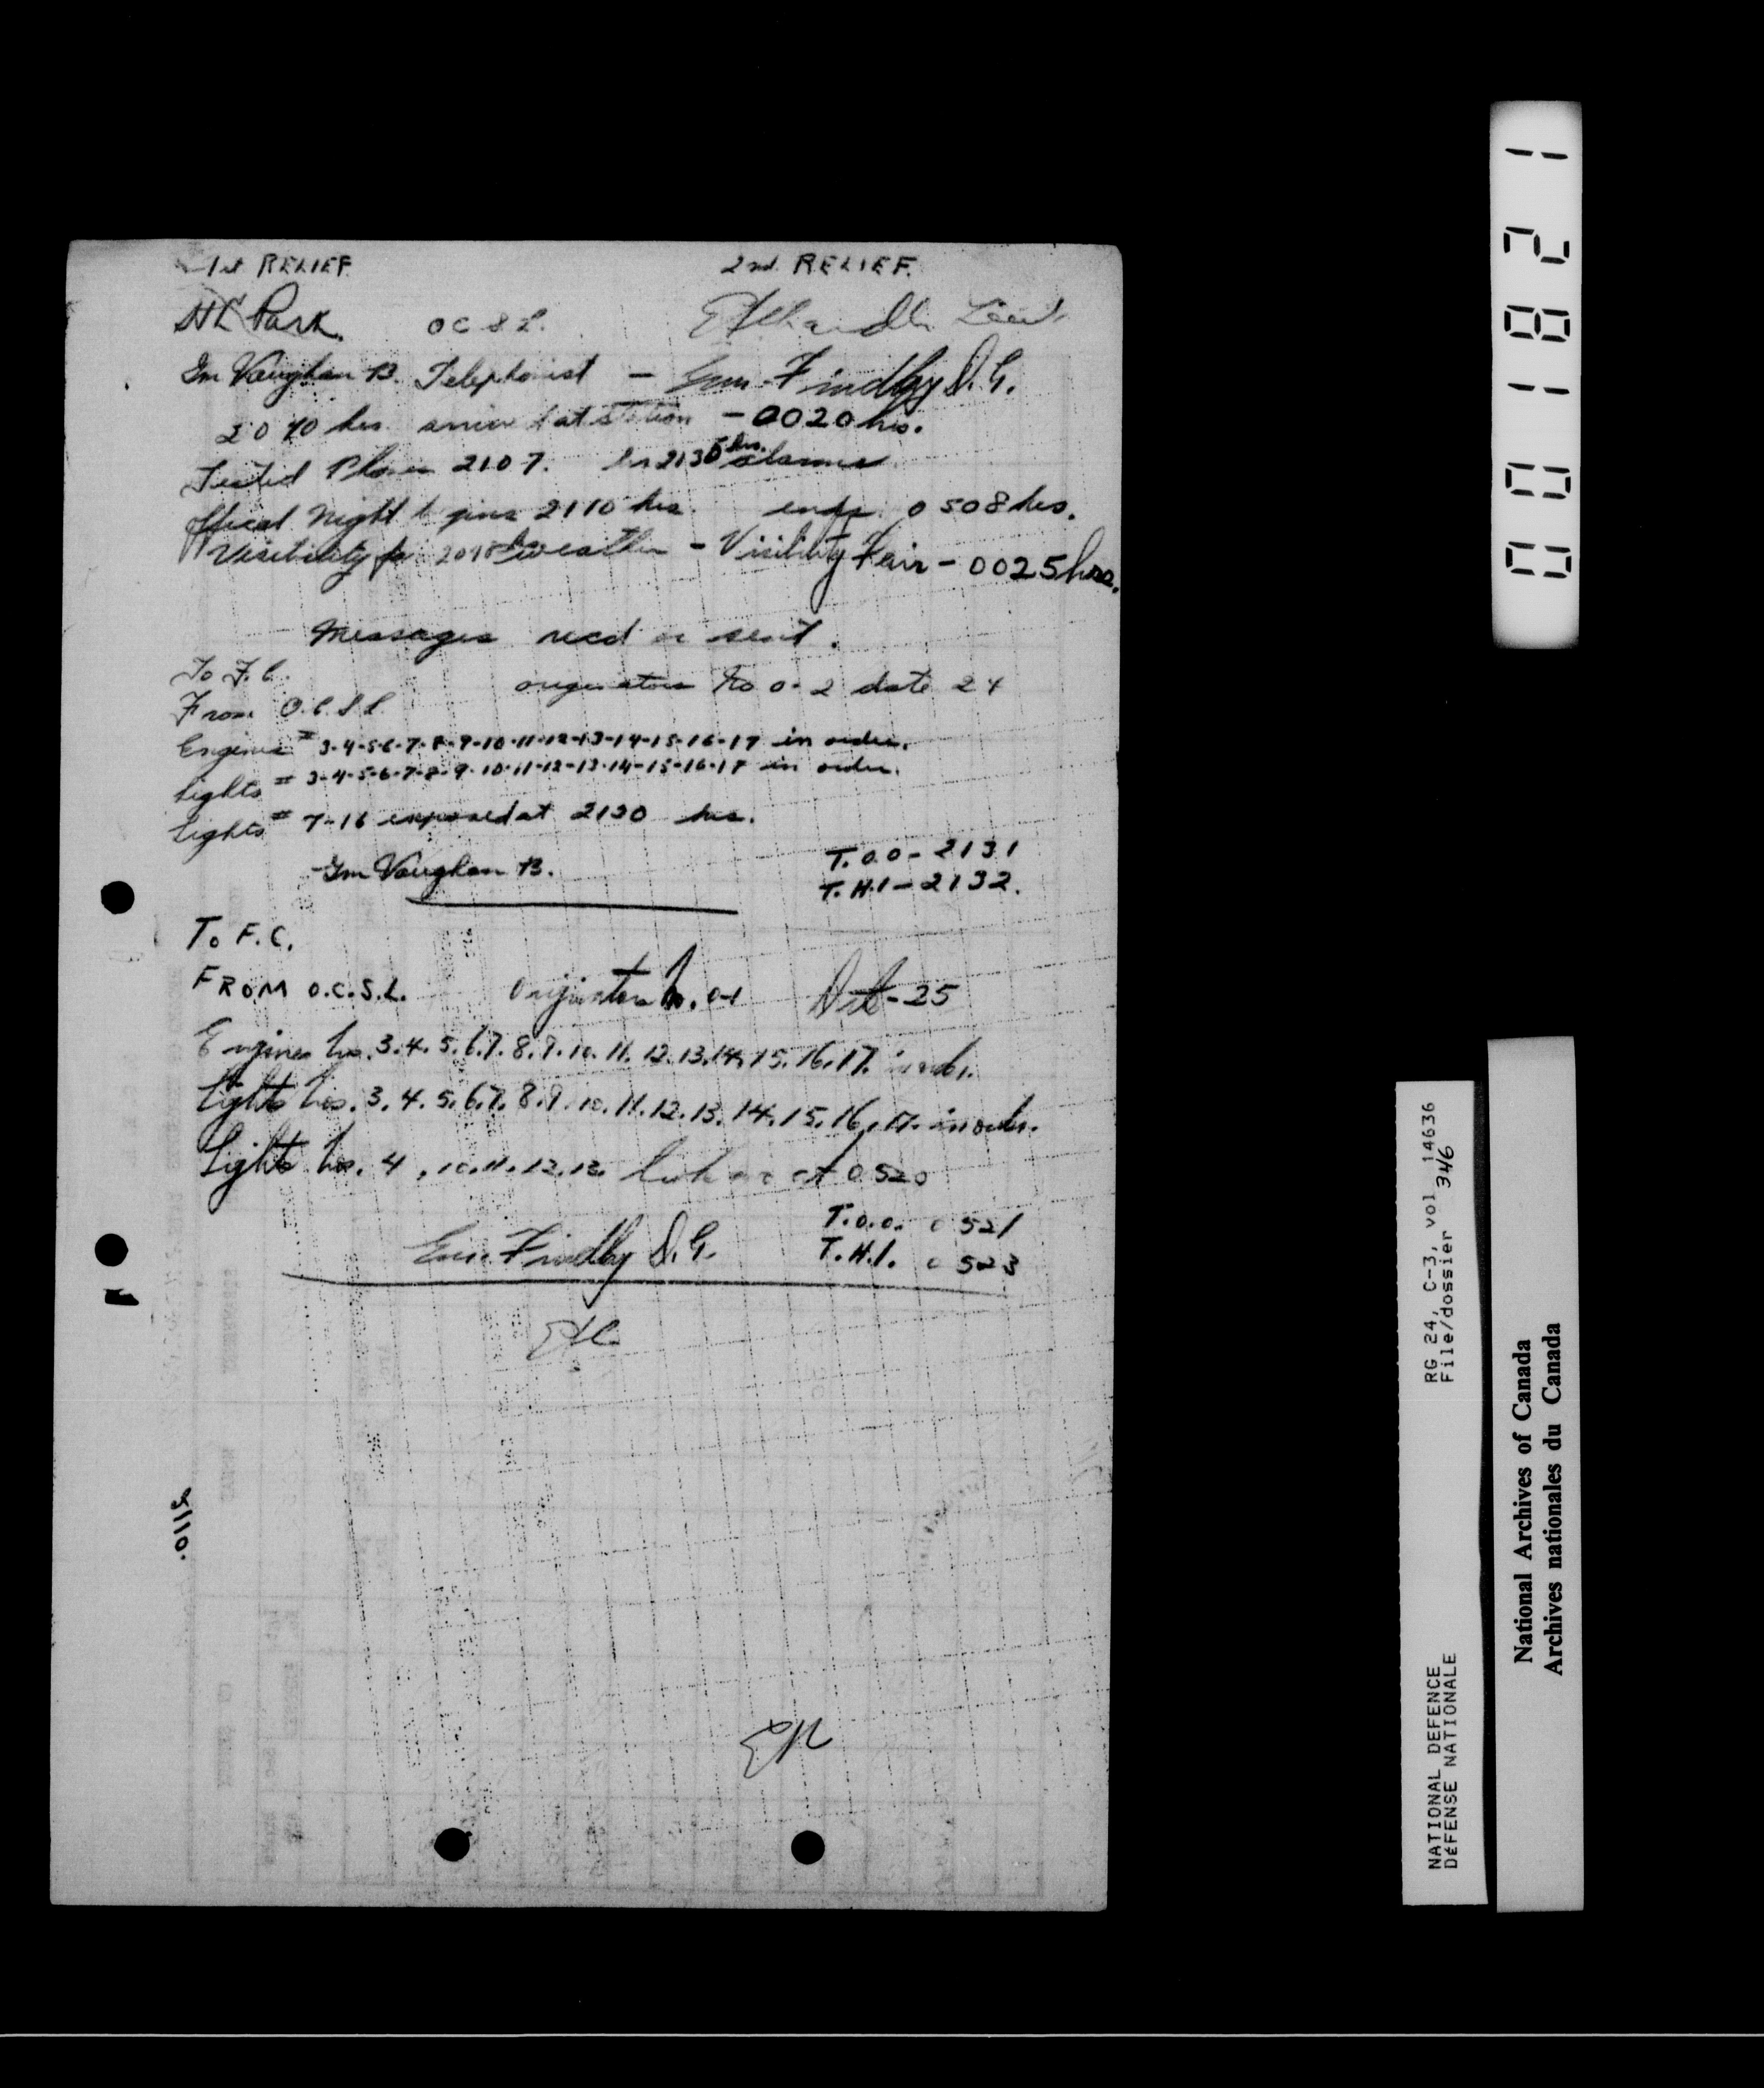 1st RELIEF. 2nd RELIEF.
H L Park. O C S L.
Gnr Vaughan B. Telephonist - Gnr. Findlay D.G.
2040 hrs. arrived at station - 0020 hrs.
Tested Phones 2107. 2135 hrs. alarms
Offical Night begins 2110 hrs. ends 0508 hrs.
Visibility weather - Visibility Fair - 0025 hrs.
Messages recd or sent.
To F.C.
originators No 0-2 date 24
From O.C.S.L.
Engines # 3-4-5-6-7-8-9-10-11-12-13-14-15-16-17 in order.
Lights # 3-4-5-6-7-8-9-10-11-12-13-14-15-16-17 in order.
Lights # 7-16 exposed at 2130 hrs.
Gnr Vaughan B.
T.O.O - 2131
T.H.I - 2132.
To F.C.
FROM O.C.S.L. Originators No. 0-1 Date - 25
Engines Nos. 3.4.5.6.7.8.9.10.11.12.13.14.15.16.17. in order.
Lights Nos. 3.4.5.6.7.8.9.10.11.12.13.14.15.16.17. in order.
Lights Nos. 4, 10.11.12.13. at 0520
T.O.O. 0521
Gnr. Findlay D.G.
T.H.I. 0523
0112.
001821
RG 24, C-3, vol 14636
File/dossier 346
NATIONAL DEFENCE
DÉFENSE NATIONALE
National Archives of Canada
Archives nationales du Canada